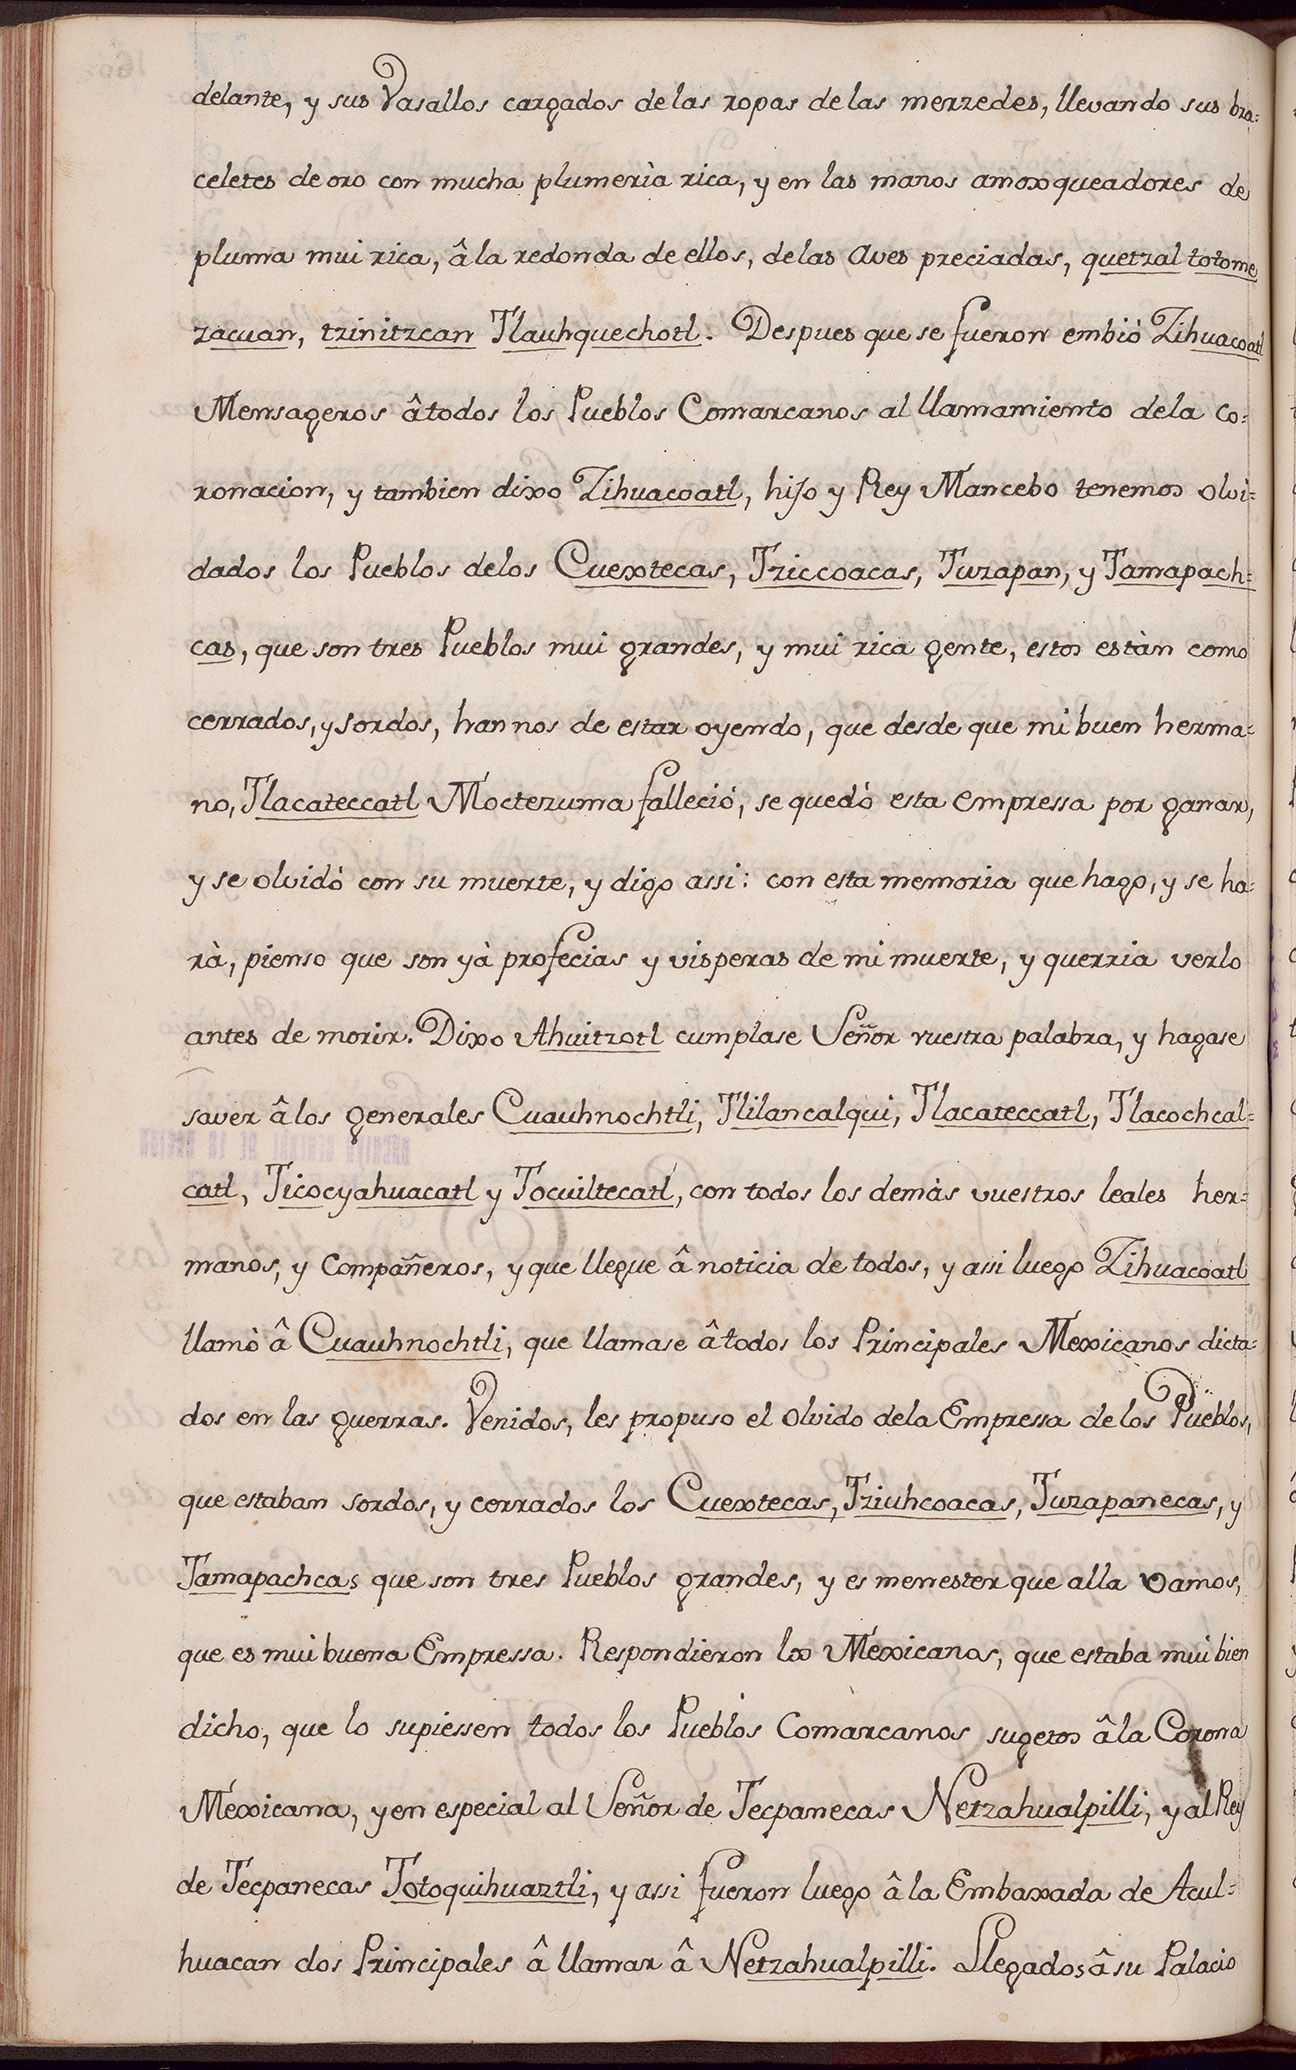 delante, y sus Vasallos cargados de las ropas de las merzedes, llevando sus bra=
celetes de oro con mucha plumerìa rica, y en las manos amoxqueadores de
pluma mui rica, â la redonda de ellos, de las aves preciadas, quetzal totome
zacuan, tzinitzcan Tlauhquechotl. Despues que se fueron embiò Zihuacoatl
Mensageros â todos los Pueblos Comarcanos al llamamiento de la Co=
ronacion, y tambien dixo Zihuacoatl, hijo y Rey Mancebo tenemos olvi=
dados los Pueblos de los Cuextecas, Tziccoacas, Tuzapan, y Tamapach=
cas, que son tres Pueblos mui grandes, y mui rica gente, estos estàn como
cerrados, y sordos, han nos de estar oyendo, que desde que mi buen herma=
no, Tlacateccatl Moctezuma falleciò, se quedò esta empressa por ganar,
y se olvidò con su muerte, y digo assi: con esta memoria que hago, y se ha=
rà, pienso que son yà profecias y visperas de mi muerte, y querria verlo
antes de morir. Dixo Ahuitzotl cumplase Señor vuestra palabra, y hagase
saver â los generales Cuauhnochtli, Tlilancalqui, Tlacateccatl, Tlacochcal=
catl, Ticocyahuacatl y Tocuiltecatl, con todos los demàs vuestros leales her=
manos, y Compañeros, y que llegue â noticia de todos, y assi luego Zihuacoatl
llamò â Cuauhnochtli, que llamase â todos los Principales Mexicanos dicta=
dos en las guerras. Venidos, les propuso el olvido de la Empressa de los Pueblos,
que estaban sordos, y cerrados los Cuextecas, Tziuhcoacas, Tuzapanecas, y
Tamapachcas que son tres Pueblos grandes, y es menester que alla vamos,
que es mui buena Empressa. Respondieron los Mexicanos, que estaba mui bien
dicho, que lo supiessen todos los Pueblos Comarcanos sugetos â la Corona
Mexicana, y en especial al Señor de Tecpanecas Netzahualpilli, y al Rey
de Tecpanecas Totoquihuaztli, y assi fueron luego â la Embaxada de Acul=
huacan dos Principales â llamar â Netzahualpilli. Llegados â su Palacio